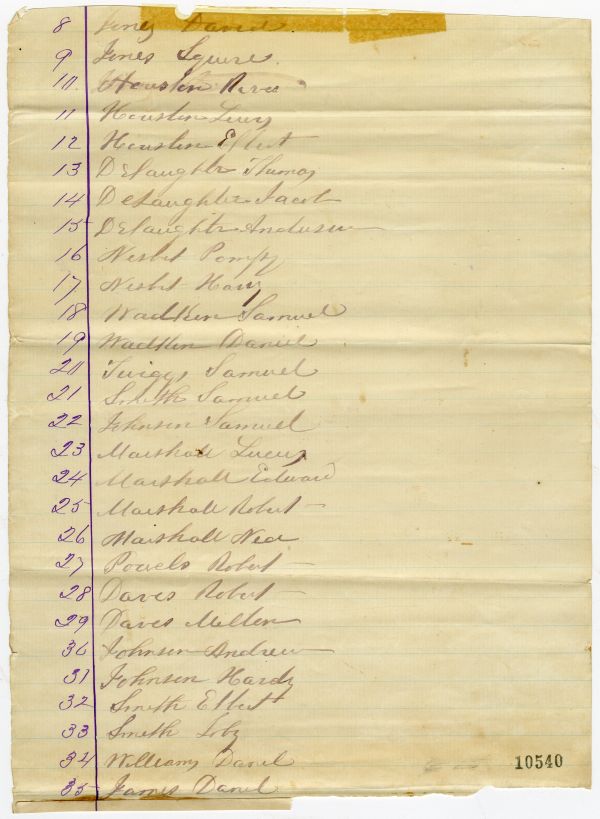 8 Jones Daniel
9 Jones Squire
10 Houston
11 Houston Lucy
12 Houston Elbert
13 DeLaughter Thomas
14 DeLaughter Jacob
15 DeLaughter Anderson
16 Nesbit Pompy
17 Nesbit Hary
18 Wadkin Samuel
19 Wadkin Daniel
20 Twiggs Samuel
21 Smith Samuel
22 Johnson Samuel
23 Marshall Lucius
24 Marshall Edward
25 Marshall Robert
26 Marshall Ned
27 Powels Robert
28 Daves Robert
29 Daves Milton
30 Johnson Andrew
31 Johnson Hardy
32 Smith Elbert
33 Smith
34 Williams Danil
10540
35 James Danil